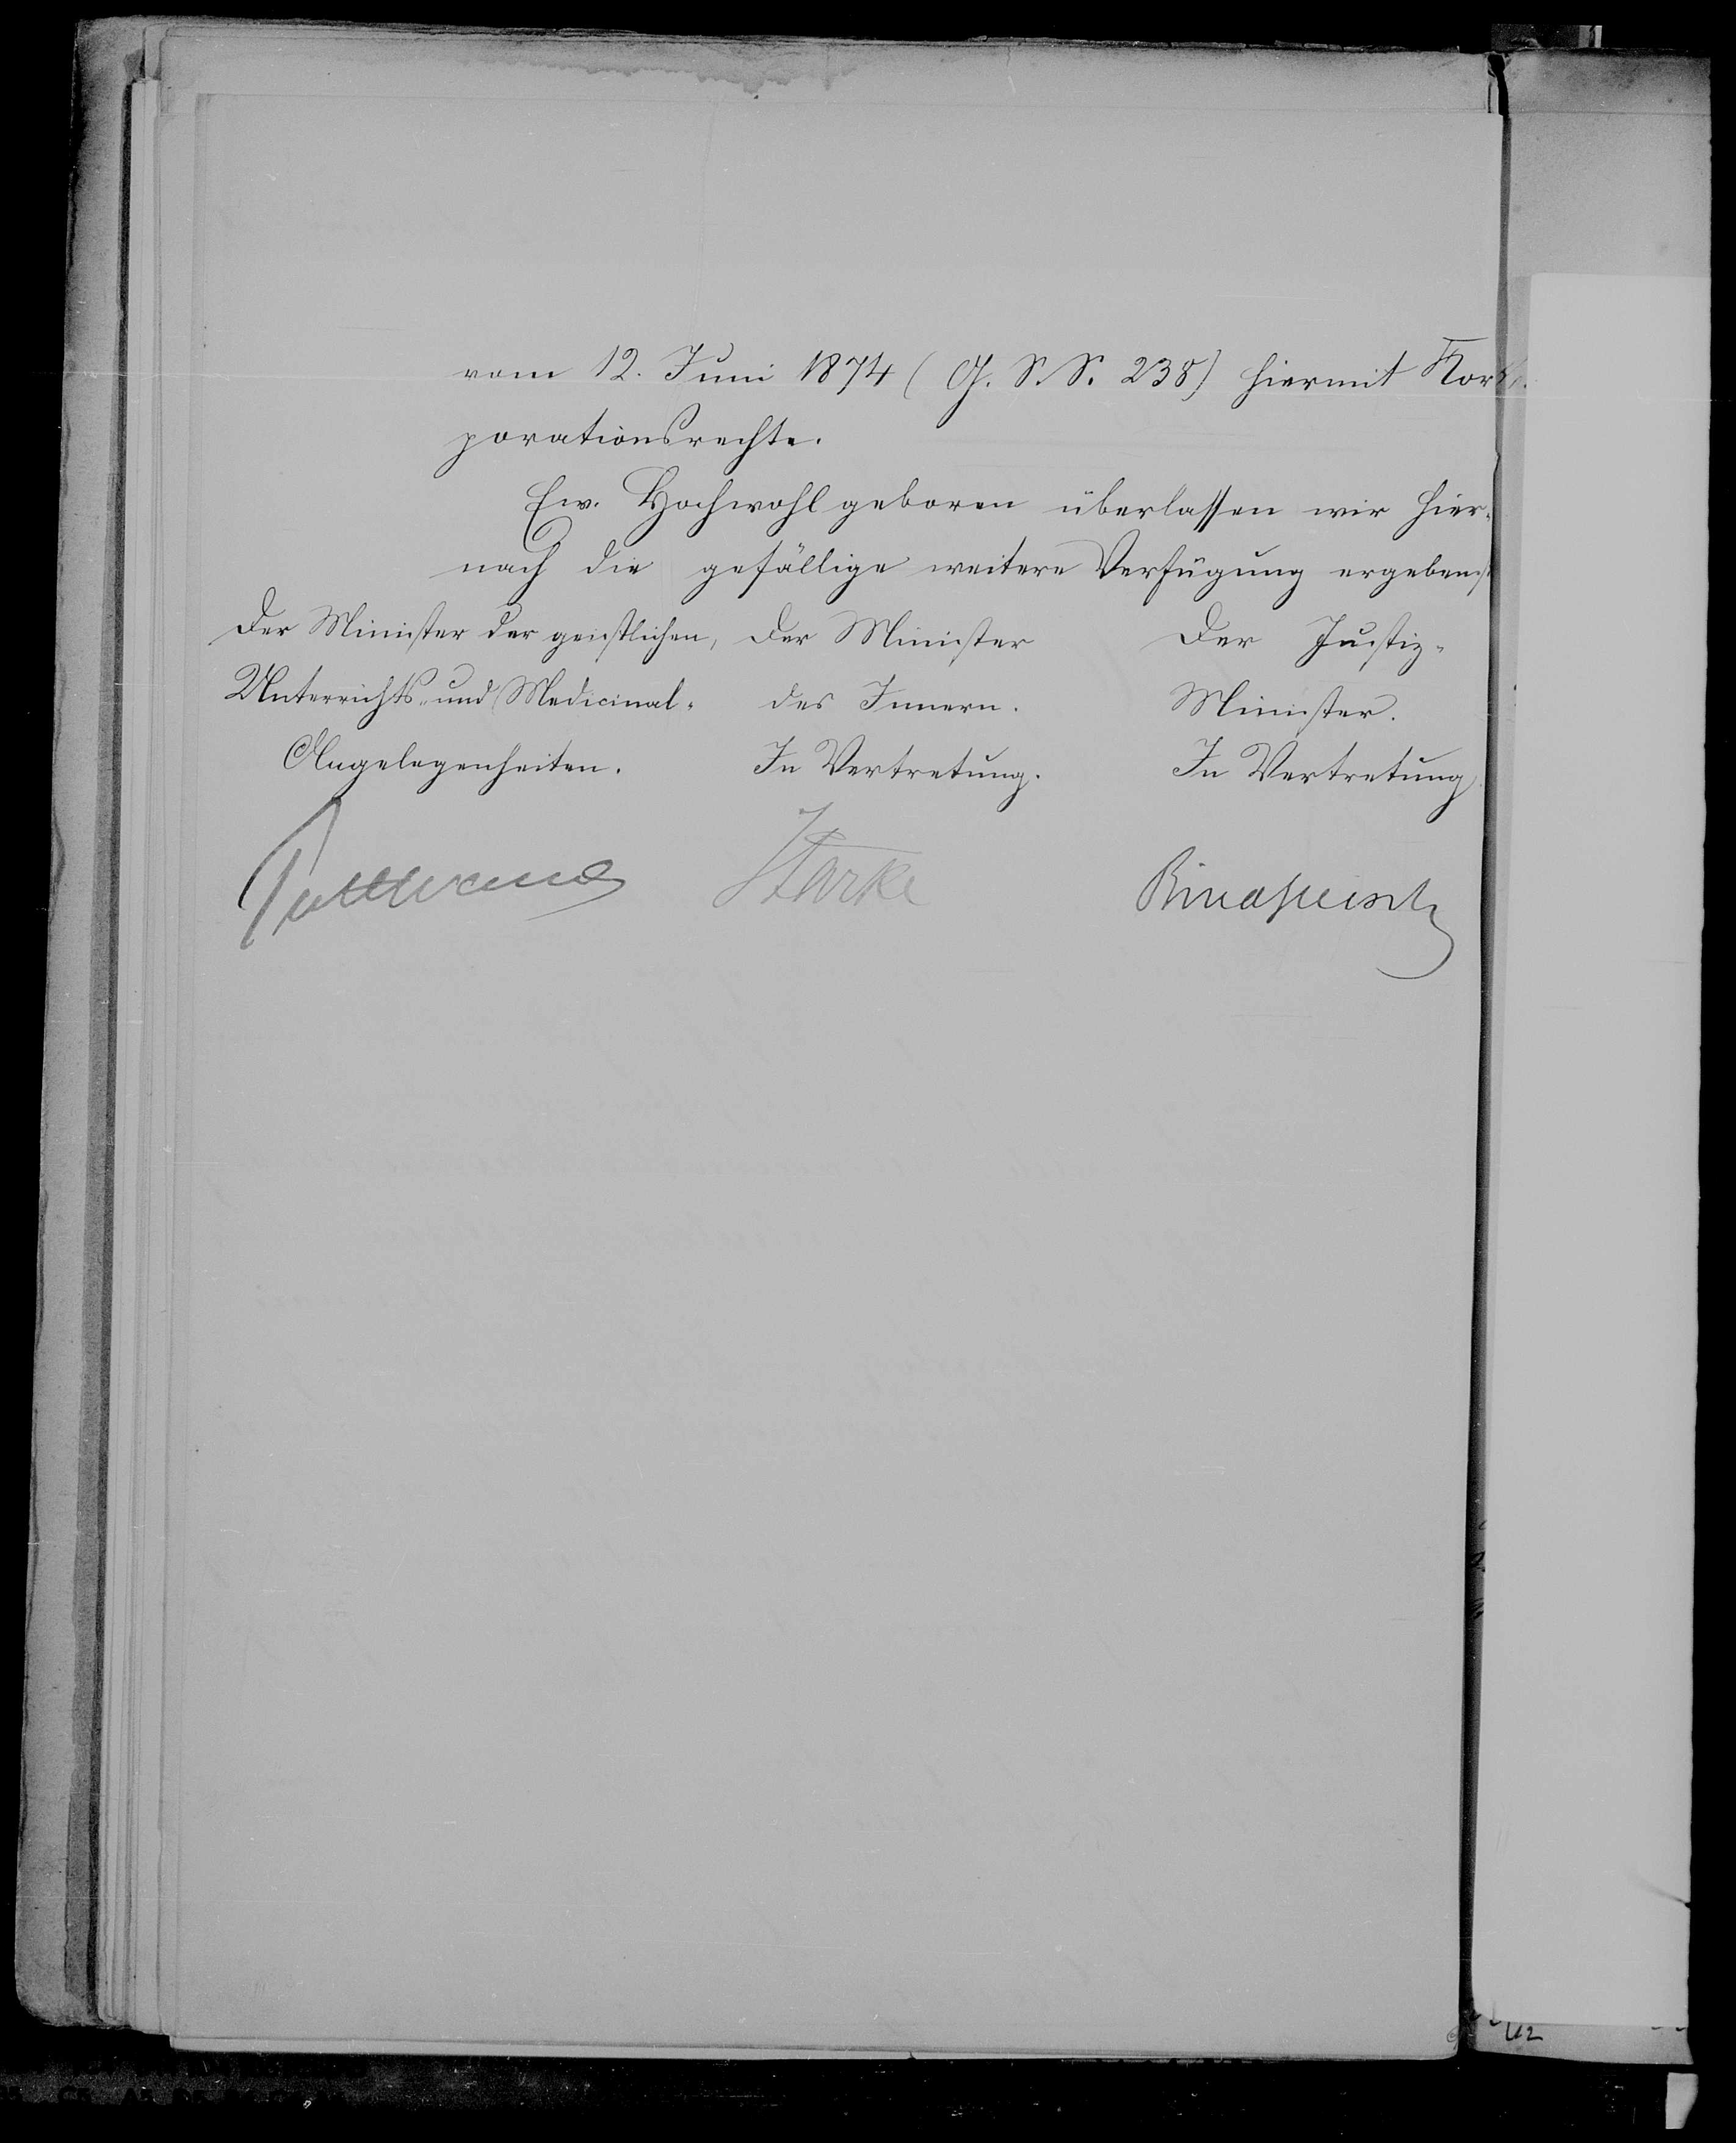 vom 12. Juni 1874 (G. S. S. 238) hiermit Kor-
porationsrechte.
Ew. Hochwohlgeboren überlassen wir hier-
nach die gefällige weitere Verfügung ergebenst
Der Minister der geistlichen,
Unterrichts- und Medicinal-
Angelegenheiten.
Puttkamer
Der Minister
des Innern.
In Vertretung.
Starke
Der Justiz-
Minister.
In Vertretung